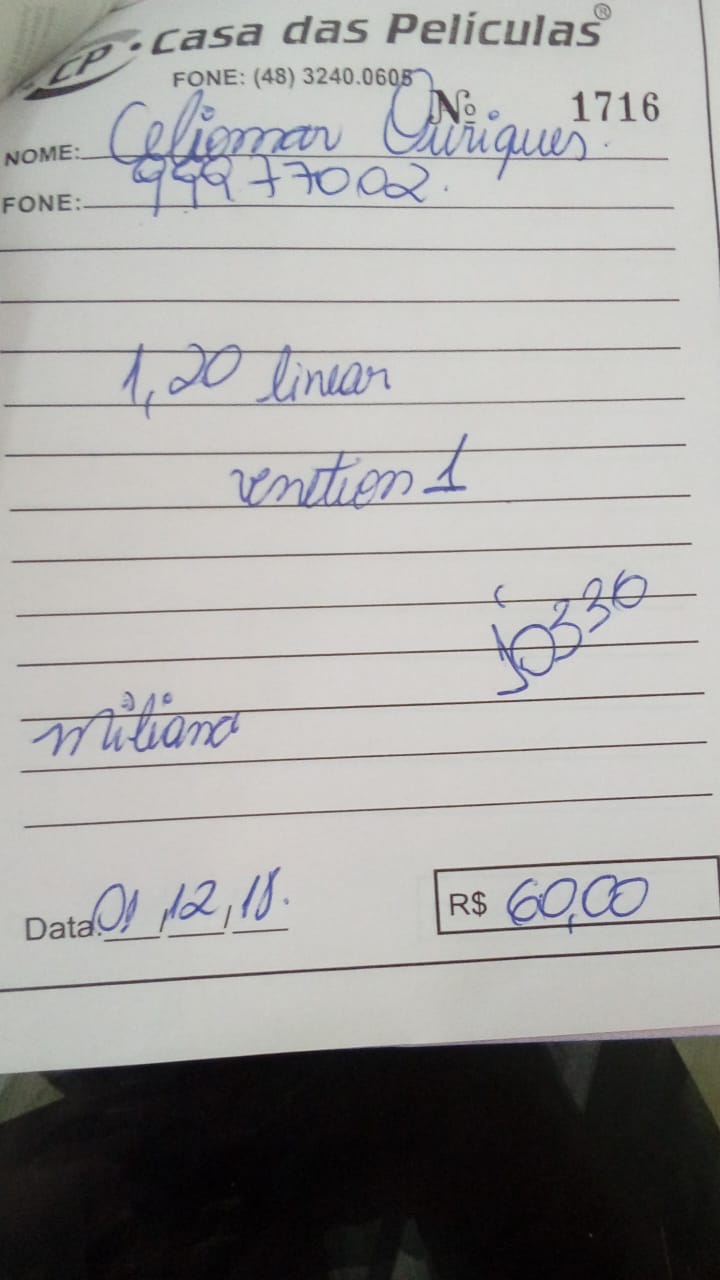 CP • Casa das Películas®
FONE: (48) 3240.0605
Nº 1716
NOME: Celiomar Ouriques.
FONE: 99977002.
1,20 linear
venetion 1
10330
miliano
Data: 01,12,18.
R$ 60,00